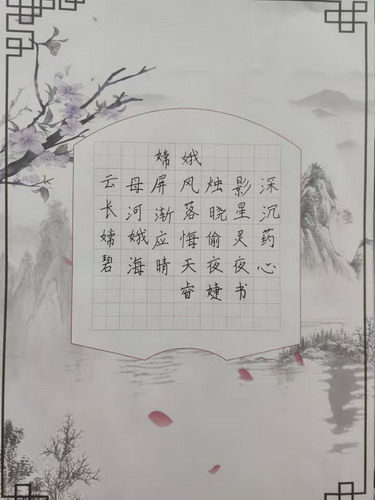 嫦娥
云母屏风烛影深
长河渐落晓星沉
嫦娥应悔偷灵药
碧海晴天夜夜心
睿婕书